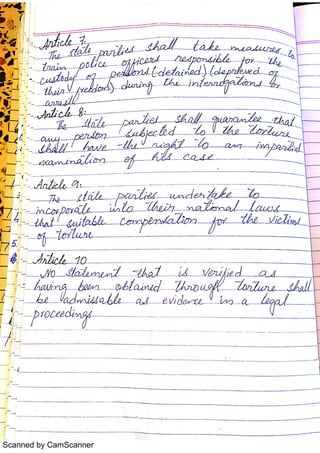 Article 7.
The state parties shall take measures to
train police officers responsible for the
custody of persons (detained) (deprieved of
their freedom) during the interrogations or
arrest.
Article 8:
The state parties shall guarantee that
any person subjected to the torture
shall have the right to an impartial
examination of his case.
Article 9:
The state parties undertake to
incorporate into their national laws
that suitable compensation for the victims
of torture
Article 10
No statement that is verified as
having been obtained through torture shall
be admissable as evidence in a legal
proceedings
Scanned by CamScanner